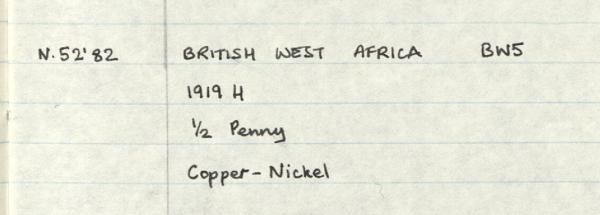 N.52'82 BRITISH WEST AFRICA BW5
1919 H
1/2 Penny
Copper-Nickel